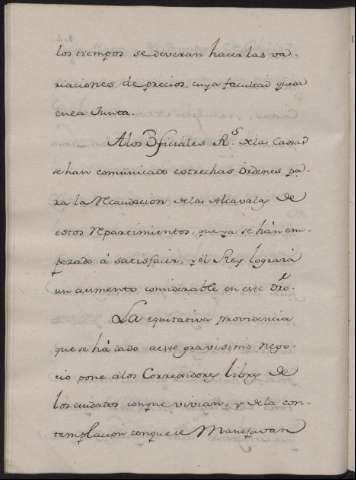 los tiempos se deveran hacer las va-
riaciones de precios, cuya facultad queda
en ea Junta.
A los Oficiales R.s de las Caxas
se han comunicado estrechas ordenes pa-
ra la Recaudacion de las Alcavalas de
estos Repartimientos, que ya se hán em-
pezado á satisfacer, y él Rey lograrà
un aumento considerable en este Dro.
La equitativa providencia
que se há dado a este gravissimo nego-
cio pone á los Corregidores libres de
los cuidados conque vivian, y de la con-
templacion conque se Manejavan